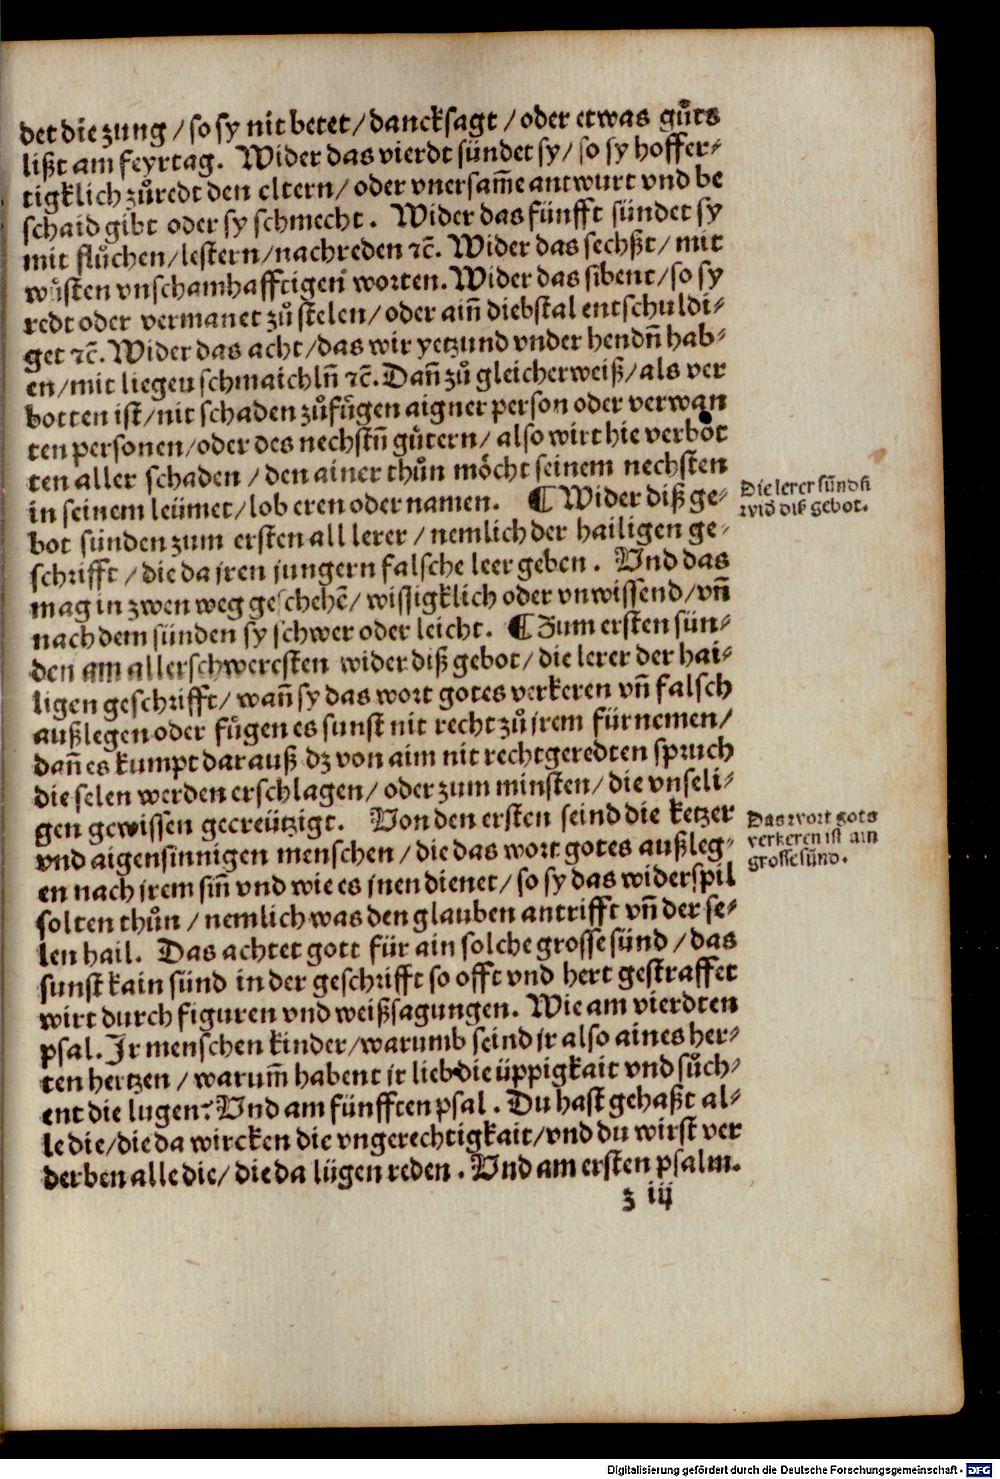 det die zung / so sy nit betet / dancksagt / oder etwas gůts
lißt am feyrtag. Wider das vierdt sündet sy / so sy hoffer⸗
tigklich zůredt den eltern / oder vnersam̃e antwurt vnd be
schaid gibt oder sy schmecht. Wider das fünfft sündet sy
mit flůchen / lestern / nachreden ⁊c̃. Wider das sechßt / mit
wůsten vnschamhafftigen worten. Wider das sibent / so sy
redt oder vermanet zů stelen / oder ain̄ diebstal entschuldi⸗
get ⁊c̃. Wider das acht / das wir yetzund vnder hendn̄ hab⸗
en / mit liegen schmaichln̄ ⁊c̃. Dan̄ zů gleicher weiß / als ver
botten ist / nit schaden zůfůgen aigner person oder verwan
ten personen / oder des nechstn̄ gůtern / also wirt hie verbot
ten aller schaden / den ainer thůn mőcht seinem nechsten
in seinem leümet / lob eren oder namen. ¶ Wider diß ge⸗
bot sünden zum ersten all lerer / nemlich der hailigen ge⸗
schrifft / die da jren jungern falsche leer geben. Vnd das
mag in zwen weg geschehē / wissigklich oder vnwissend / vn̄
nach dem sünden sy schwer oder leicht. ¶ Zum ersten sün⸗
den am allerschweresten wider diß gebot / die lerer der hai⸗
ligen geschrifft / wan̄ sy das wort gotes verkeren vn̄ falsch
außlegen oder fůgen es sunst nit recht zů jrem fürnemen /
dan̄ es kumpt darauß dz von aim nit recht geredten spruch
die selen werden erschlagen / oder zum minsten / die vnseli⸗
gen gewissen gecreützigt. Von den ersten seind die ketzer
vnd aigensinnigen menschen / die das wort gotes außleg⸗
en nach jrem sin̄ vnd wie es jnen dienet / so sy das widerspil
solten thůn / nemlich was den glauben antrifft vn̄ der se⸗
len hail. Das achtet gott für ain solche grosse sünd / das
sunst kain sünd in der geschrifft so offt vnd hert gestraffet
wirt durch figuren vnd weißsagungen. Wie am vierdten
psal. Jr menschen kinder / warumb seind jr also aines her⸗
ten hertzen / warum̄ habent jr lieb die üppigkait vnd sůch⸗
ent die lugen? Vnd am fünfften psal. Du hast gehaßt al⸗
le die / die da wircken die vngerechtigkait / vnd du wirst ver
derben alle die / die da lügen reden. Vnd am ersten psalm.
z iij
Die lerer sündn̄
wid diß gebot.
Das wort gots
verkeren ist ain
grosse sünd.
Digitalisierung gefördert durch die Deutsche Forschungsgemeinschaft - DFG